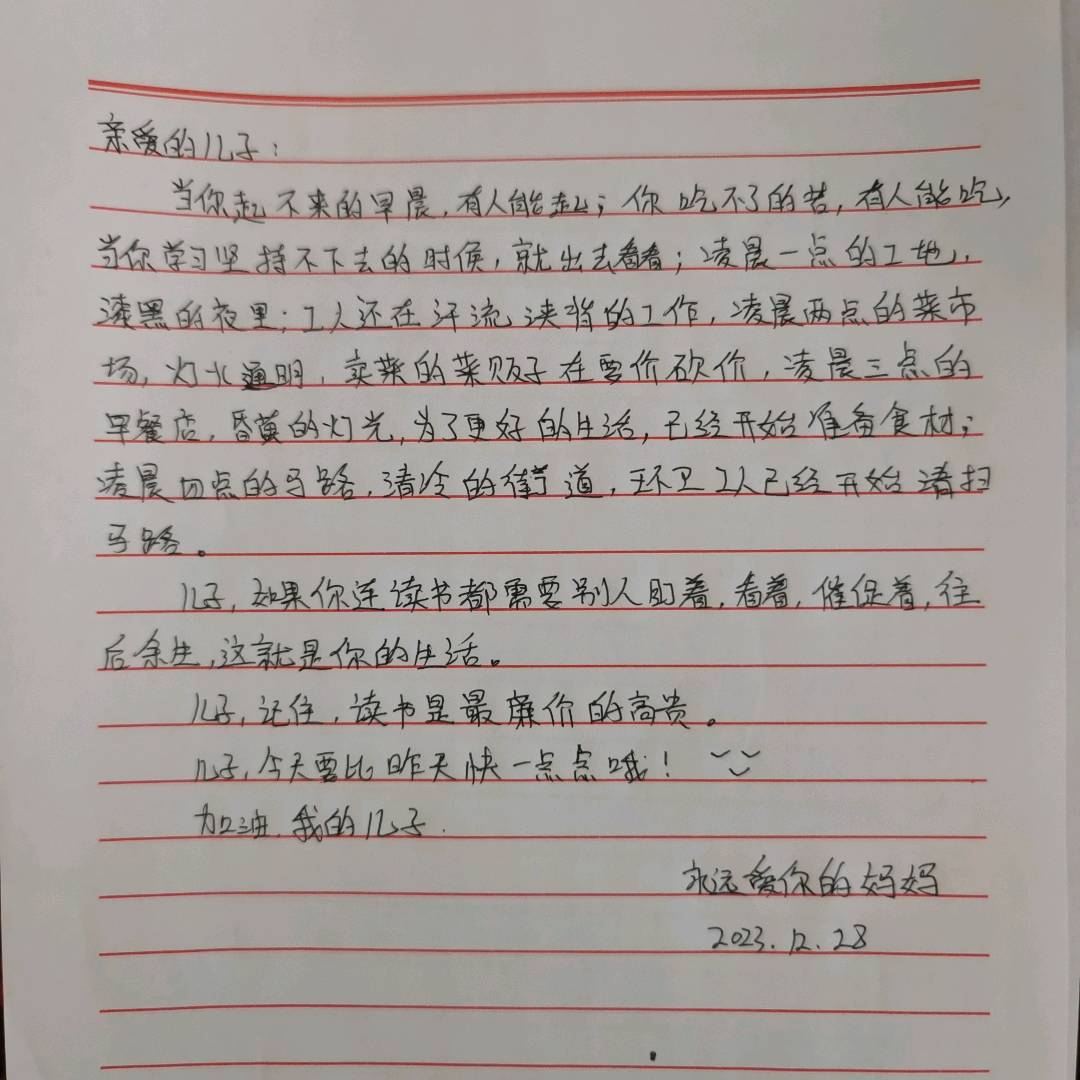 亲爱的儿子:
当你起不来的早晨,有人能起;你吃不了的苦,有人能吃,
当你学习坚持不下去的时候,就出去看看;凌晨一点的工地,
漆黑的夜里;工人还在汗流浃背的工作,凌晨两点的菜市
场,灯火通明,卖菜的菜贩子在要价砍价,凌晨三点的
早餐店,昏黄的灯光,为了更好的生活,已经开始准备食材;
凌晨四点的马路,清冷的街道,环卫工人已经开始清扫
马路。
儿子,如果你连读书都需要别人盯着,看着,催促着,往
后余生,这就是你的生活。
儿子,记住,读书是最廉价的高贵。
儿子,今天要比昨天快一点点哦!
加油,我的儿子.
永远爱你的妈妈
2023.12.28